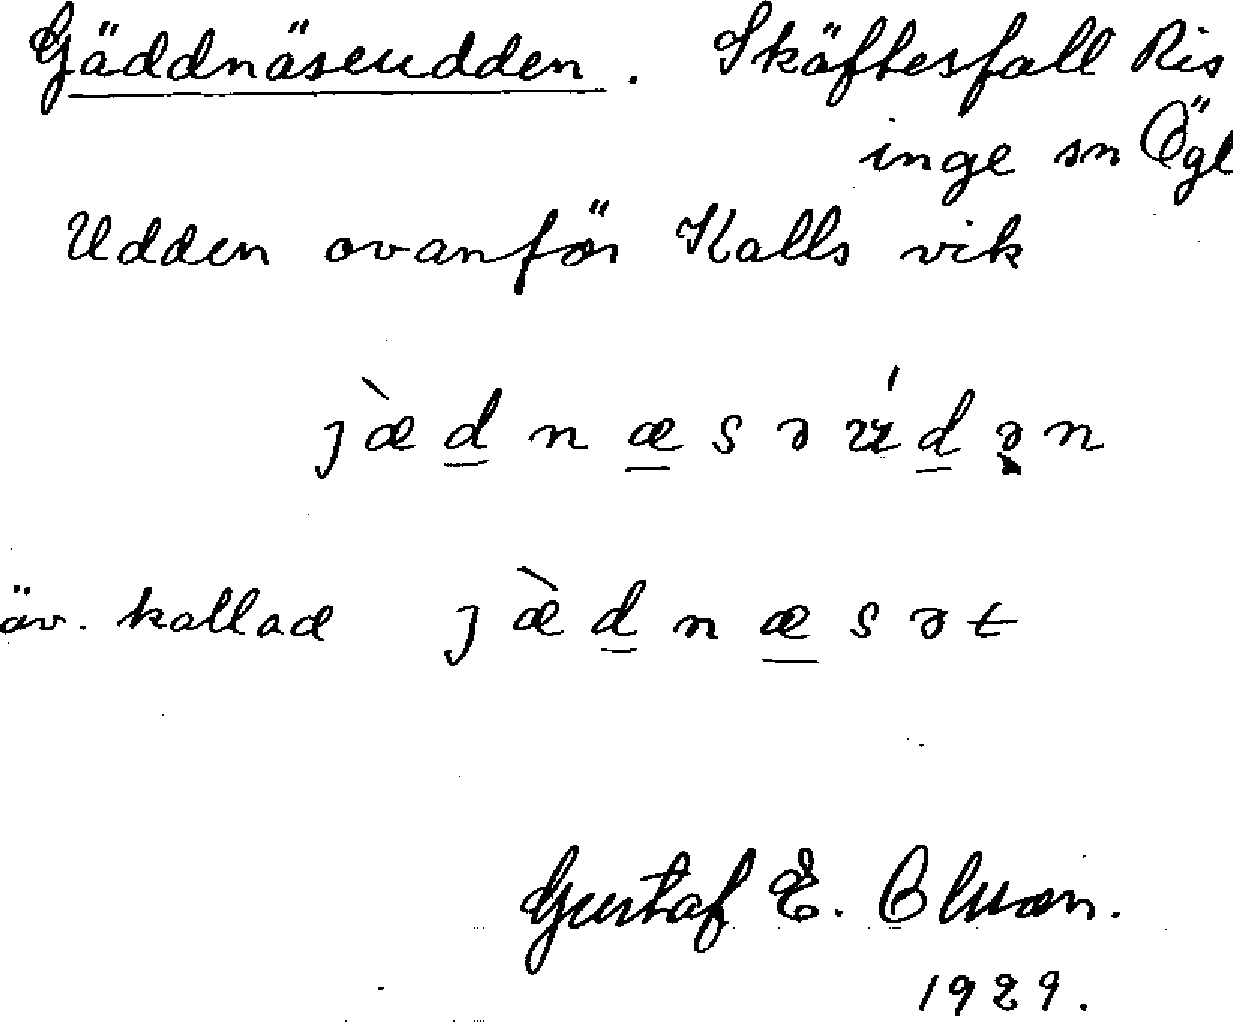 Gäddnäseudden. Skäftesfall Ris
inge sn Ögl
Udden ovanför Kalls vik
jæ̀d̲næ̲səúd̲ən
äv. kallad jæ̀d̲næ̲sət
Gustaf E.
1929.